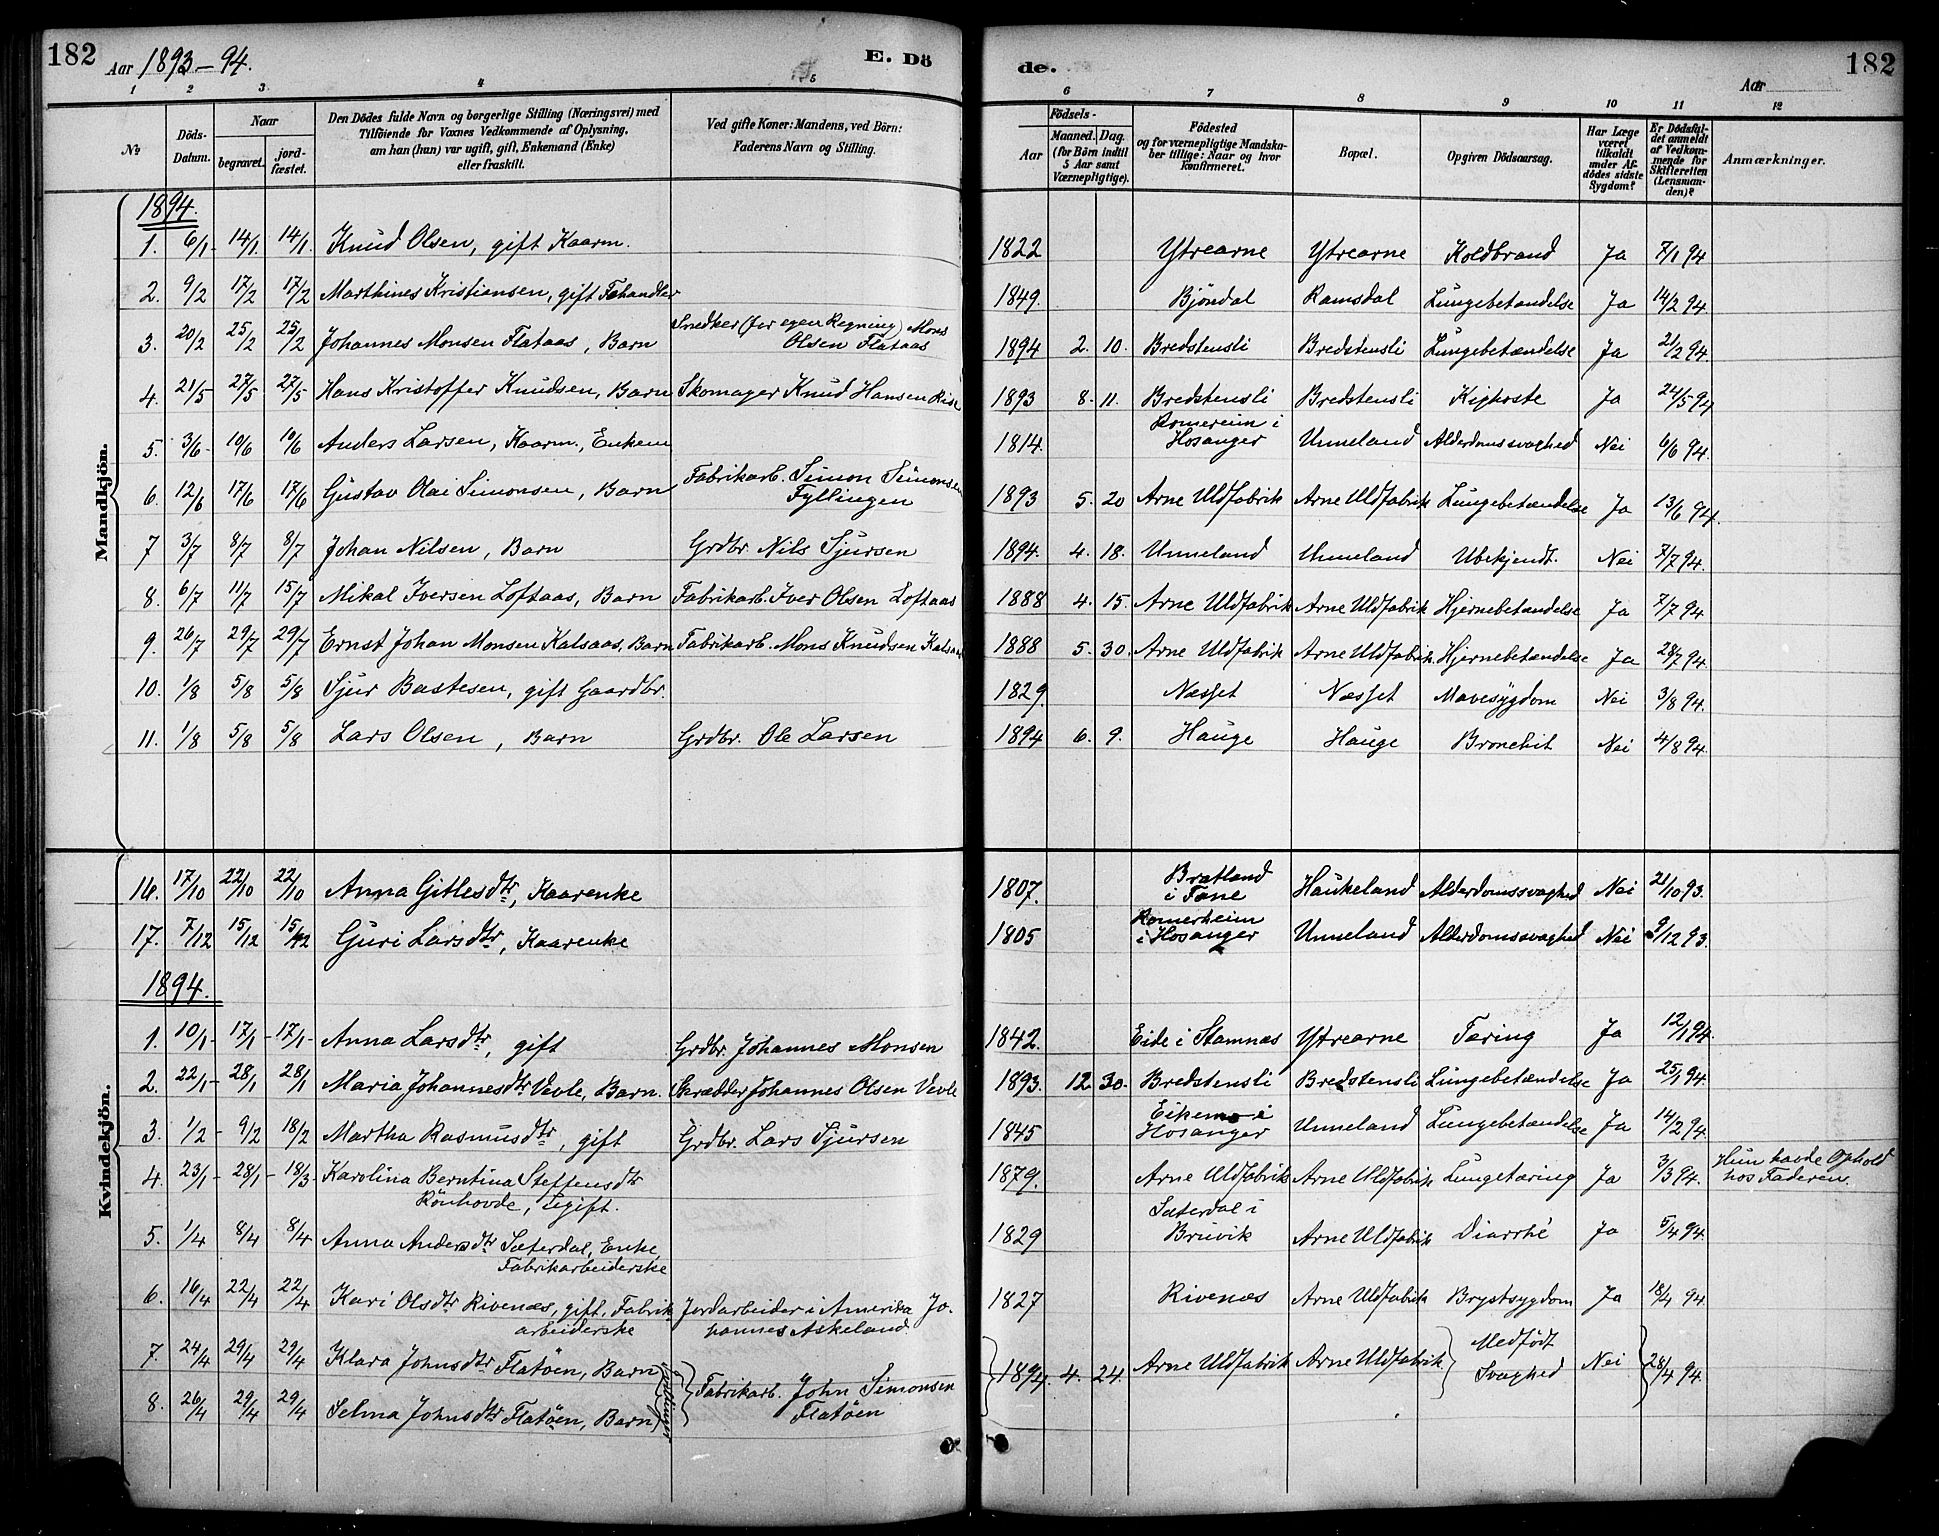 182 Aar 1893-94. E. Dö
de. Aar 182
1 2 3 4 5 6 7 8 9 10 11 12
№ Döds-Datum. Naar begravet. jord-fæstet. Den Dödes fulde Navn og borgerlige Stilling (Næringsvei) med Tilföiende for Voxnes Vedkommende af Oplysning, om han (hun) var ugift, gift, Enkemand (Enke) eller fraskilt. Ved gifte Koner: Mandens, ved Börn: Faderens Navn og Stilling. Födsels- Aar Maaned. Dag. (for Börn indtil 5 Aar samt Værnepligtige). Födested og for værnepligtige Mandskaber tillige: Naar og hvor Konfirmeret. Bopæl. Opgiven Dödsaarsag. Har Læge været tilkaldt under Afdödes sidste Sygdom? Er Dödsfaldet anmeldt af Vedkommende for Skifteretten (Lensmanden)? Anmærkninger.
Mandkjön.
1894.
1. 6/1- 14/1. 14/1. Knud Olsen, gift Kaarm. 1822 Ytrearne Ytrearne Koldbrand Ja 7/1 94
2. 9/2 17/2 17/2 Marthines Kristiansen, gift Fæhandler 1849. Bjöndal Ramsdal Lungebetændelse Ja 14/2 94.
3. 20/2 25/2 25/2 Johannes Monsen Flataas, Barn Snedker (for egen Regning) Mons Olsen Flataas 1894 2. 10. Bredstensli Bredstensli Lungebetændelse Ja 21/2 94.
4. 21/5 27/5 27/5 Hans Kristoffer Knudsen, Barn Skomager Knud Hansen Rise 1893 8. 11. Bredstensli Bredstensli Kighoste Ja 24/5 94
5. 3/6- 10/6 10/6 Anders Larsen, Kaarm. Enkem 1814. Romereim i Hosanger Unneland Alderdomssvaghed Nei 6/6 94.
6. 12/6 17/6 17/6 Gustav Olai Simonsen, Barn Fabrikarb. Simon Simonsen Fyllingen 1893 5. 20 Arne Uldfabrik Arne Uldfabrik Lungebetændelse Ja 13/6 94.
7 3/7 8/7 8/7 Johan Nilsen, Barn Grdbr. Nils Sjursen 1894. 4. 18. Unneland Unneland Ubekjendt. Nei 7/7 94.
8. 6/7 11/7 15/7 Mikal Iversen Loftaas, Barn Fabrikarb. Iver Olsen Loftaas 1888 4. 15. Arne Uldfabrik Arne Uldfabrik Hjernebetændelse Ja 7/7 94
9. 26/7 29/7 29/7 Ernst Johan Monsen Kalsaas, Barn Fabrikarb. Mons Knudsen Kalsaas 1888 5. 30. Arne Uldfabrik Arne Uldfabrik Hjernebetændelse Ja 28/7 94.
10. 1/8 5/8 5/8 Sjur Bastesen, gift Gaardbr. 1829. Næsset Næsset Mavesygdom Nei 3/8 94.
11. 1/8 5/8 5/8 Lars Olsen, Barn Grdbr. Ole Larsen 1894 6. 9. Hauge Hauge Bronchit Nei 4/8 94.
Kvindekjön.
16. 17/10 22/10 22/10 Anna Gitlesdtr, Kaarenke 1807. Bratland i Fane Haukeland Alderdomssvaghed Nei 21/10 93.
17. 7/12 15/12 15/12 Guri Larsdtr, Kaarenke 1805 Romerheim i Hosanger Unneland Alderdomssvaghed Nei 9/12 93.
1894.
1. 10/1- 17/1- 17/1- Anna Larsdtr, gift Grdbr. Johannes Monsen 1842. Eide i Stamnæs Ytrearne Tæring Ja 12/1 94.
2. 22/1- 28/1 28/1 Maria Johannesdtr Vevle, Barn. Skrædder Johannes Olsen Vevle 1893. 12 30. Bredstensli Bredstensli Lungebetændelse Ja 25/1 94.
3. 1/2- 9/2 18/2 Martha Rasmusdtr, gift Grdbr. Lars Sjursen 1845 Eikemo i Hosanger Unneland Lungebetændelse Ja 14/2 94.
4. 23/1- 28/1- 18/3 Karolina Berntina Steffensdtr Rönhovde, Ugift. 1879. Arne Uldfabrik Arne Uldfabrik Lungetæring Ja 3/3 94. Hun havde Ophold hos Faderen.
5. 1/4 8/4 8/4 Anna Andersdtr Sæterdal, Enke, Fabrikarbeiderske 1829 Sæterdal i Bruvik Arne Uldfabrik Diarrhé Ja 5/4 94.
6. 16/4 22/4 22/4 Kari Olsdtr Rivenæs, gift, Fabrikarbeiderske Jordarbeider i Amerika Johannes Askeland 1827 Rivenæs Arne Uldfabrik Brystsygdom Ja 18/4 94.
7. 24/4 29/4 29/4 Klara Johnsdtr Flatöen, Barn
8. 26/4 29/4 29/4 Selma Johnsdtr Flatöen, Barn Tvillinger Fabrikarb. John Simonsen Flatöen 1894. 4. 24. Arne Uldfabrik Arne Uldfabrik Medfödt Svaghed Nei 28/4 94.